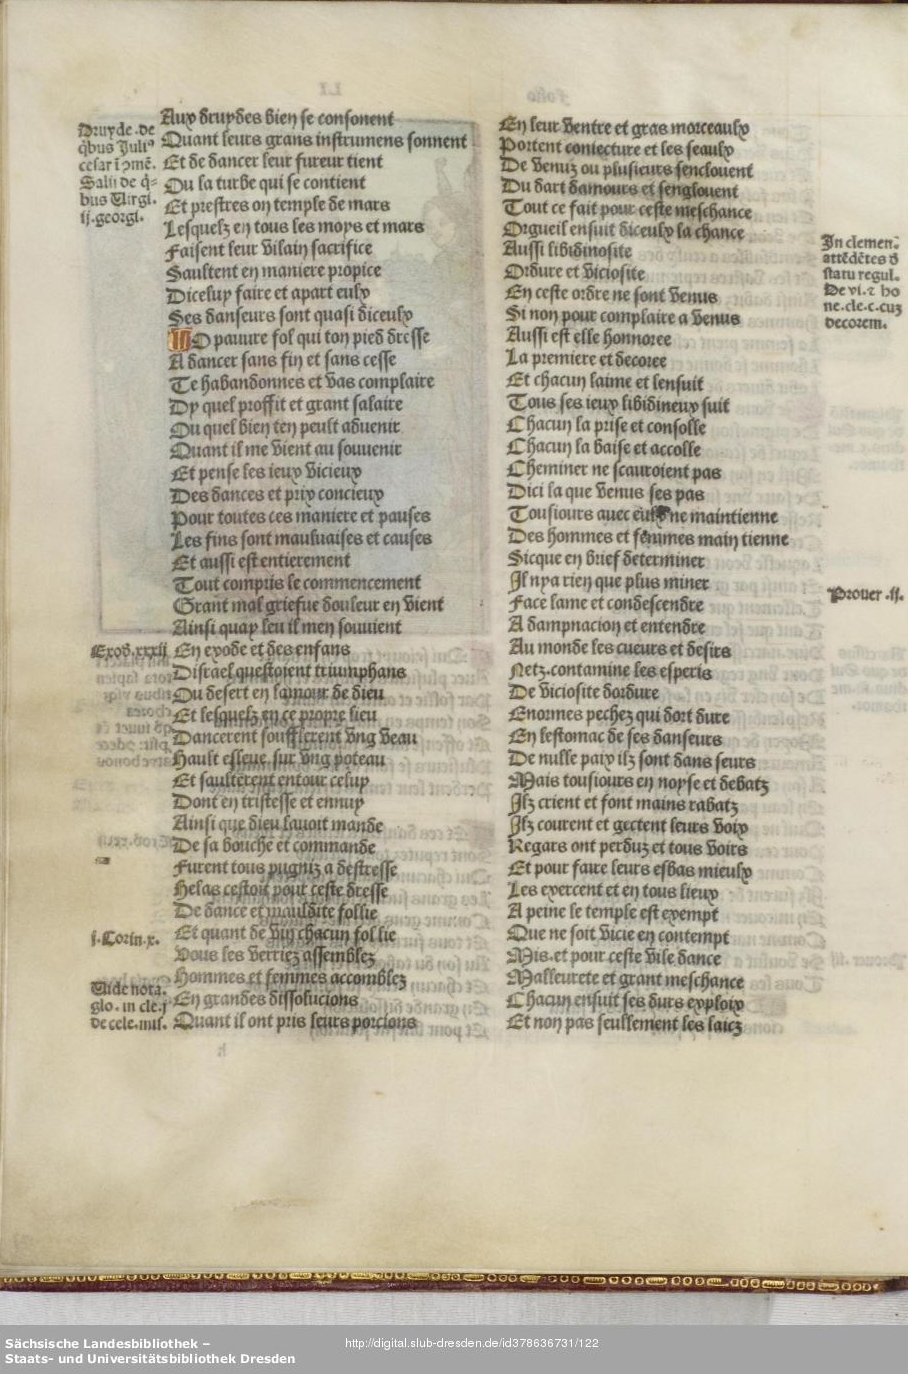 Aux druydes bien se consonent
Quant leurs grans instrumens sonnent
Et de dancer leur fureur tient
Ou la turbe qui se contient
Et prestres on temple de mars
Lesquelz en tous les moys et mars
Faisent leur vilain sacrifice
Saultent en maniere propice
Diceluy faire et apart eulx
Ses danseurs sont quasi diceulx
O pauure fol qui ton pied dresse
A dancer sans fin et sans cesse
Te habandonnes et vas complaire
Dy quel proffit et grant salaire
Ou quel bien ten peult aduenir
Quant il me vient au souuenir
Et pense les ieux vicieux
Des dances et prix concieux
Pour toutes ces maniere et pauses
Les fins sont mauluaises et causes
Et aussi est entierement
Tout compris le commencement
Grant mal griefue douleur en vient
Ainsi quay leu il men souuient
En exode et des enfans
Disrael questoient triumphans
Ou desert en lamour de dieu
Et lesquelz en ce propre lieu
Dancerent soufflerent vng veau
Hault esleue sur vng poteau
Et saulterent entour celuy
Dont en tristesse et ennuy
Ainsi que dieu lauoit mande
De sa bouche et commande
Furent tous pugniz a destresse
Helas cestoit pour ceste dresse
De dance et mauldite follie
Et quant de vin chacun fol lie
Vous les verriez assemblez
Hommes et femmes accomblez
En grandes dissolucions
Quant il ont pris leurs porcions
Druyde. de
q̃bus Juliꝰ
cesar ĩ ꝯmẽ.
Salii de q̃-
bus Virgi.
ij. georgi.
Exod. xxxij
j. Corin. x.
Vide nota.
glo. in cle. j
de cele. mis.
En leur ventre et gras morceaulx
Portent coniecture et les seaulx
De venuz ou plusieurs senclouent
Du dart damours et senglouent
Tout ce fait pour ceste meschance
Orgueil ensuit diceulx la chance
Aussi libidinosite
Ordure et viciosite
En ceste ordre ne sont venus
Si non pour complaire a venus
Aussi est elle honnoree
La premiere et decoree
Et chacun laime et lensuit
Tous ses ieux libidineux suit
Chacun la prise et consolle
Chacun la baise et accolle
Cheminer ne scauroient pas
Dici la que venus ses pas
Tousiours auec eulx ne maintienne
Des hommes et femmes main tienne
Sicque en brief determiner
Il nya rien que plus miner
Face lame et condescendre
A dampnacion et entendre
Au monde les cueurs et desirs
Netz. contamine les esperis
De viciosite dordure
Enormes pechez qui dort dure
En lestomac de ses danseurs
De nulle paix ilz sont dans seurs
Mais tousiours en noyse et debatz
Ilz crient et font mains rabatz
Ilz courent et gectent leurs voix
Regars ont perduz et tous voirs
Et pour faire leurs esbas mieulx
Les exercent et en tous lieux
A peine le temple est exempt
Que ne soit vicie en contempt
Mis. et pour ceste vile dance
Malleurete et grant meschance
Chacun ensuit ses durs exploix
Et non pas seullement les laicz
In clemen.
attẽdẽtes d̃
statu regul.
De vi. ⁊ ho
ne. cle. c. cuz
decorem.
Prouer. ij.
Sächsische Landesbibliothek –
Staats- und Universitätsbibliothek Dresden
http://digital.slub-dresden.de/id378636731/122